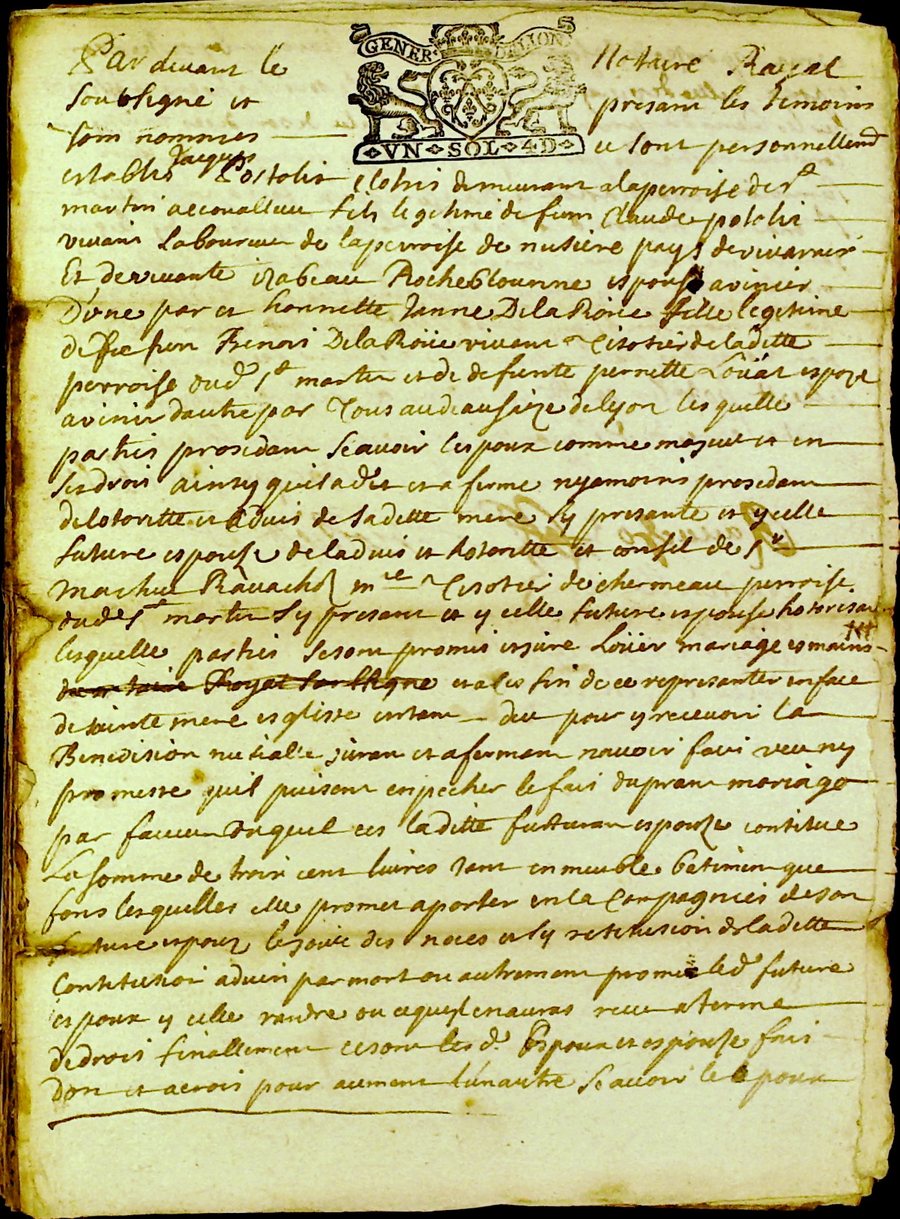 GENER DE LION
VN SOL 4D
Par devant le Notaire Royal
soubsigné et presant les temoins
som nommes ce sont personnellemt
establis Jaques Postolis Clotris demeurant a la perroise de St
martin acoualleue fils legetime de feun Claude potolis
vivant Laboureur de la perroise de nusiere pays de vivarais
Et de vivante izabeau Rocheblounne espous avinier
D'une par et honnette Janne De la Roüe fille legetime
de feun Benois De la Roüe vivant de ladette
perroise dud St martin et de defunte pernette Loüat espoze
avinir dautre par Tous au deausaize de lyon lesquelle
parties prosedam scavoir lespoux comme majeur et en
ses drois ainsy quil a det et afirme nyamoins prosedam
de lotorette et advis de sadette mere sy presante et ycelle
future espouse de laduis et hotorette et consil de Sr
Mathieu Ravachol me de chermeau perroise
dud St martin sy presant et ycelle future espouse hotorisa
lesquelle parties se som promis et jure Loüer mariage es mains
Royal soubsigne et a ces fin de ce representer en face
de sainte mere esglisse estant deu pour y recevoir la
Benedision nutialle juran et afermam navoir fait veu ny
promesse quil puisent enpecher le fait du pram mariage
par faveur duquel ces ladette fuduran espouze contitue
La somme de trois cent livres tant en meuble batimen que
fons lesquelles elle promet aporter en la Compagnies de son
future espoux le joure des noces et sy retitusion de ladette
Contitution advien par mort ou autrement promet led future
espoux y celle randre ou ce quil en auras receu a terme
de drois finallement ce som les d. Espoux et espouze fait
Don et acrois pour aument lun autre scavoir le poux